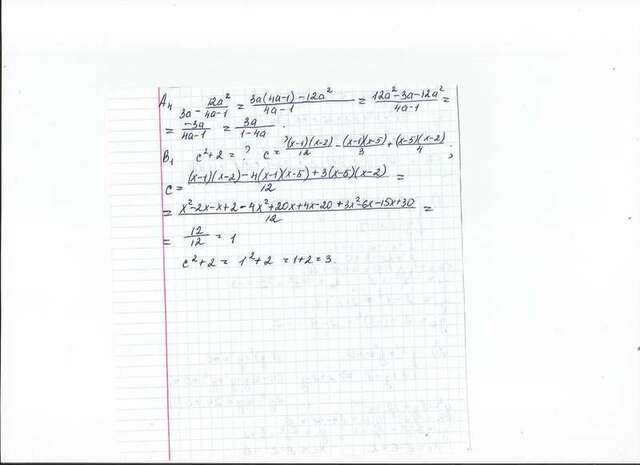 A₄ 3a - 12a²/(4a-1) = (3a(4a-1) - 12a²)/(4a-1) = (12a² - 3a - 12a²)/(4a-1) =
= -3a/(4a-1) = 3a/(1-4a).
B₁ c²+2 = ? c = (x-1)(x-2)/12 - (x-1)(x-5)/3 + (x-5)(x-2)/4 ;
c = ((x-1)(x-2) - 4(x-1)(x-5) + 3(x-5)(x-2))/12 =
= (x² - 2x - x + 2 - 4x² + 20x + 4x - 20 + 3x² - 6x - 15x + 30)/12 =
= 12/12 = 1
c²+2 = 1²+2 = 1+2 = 3.